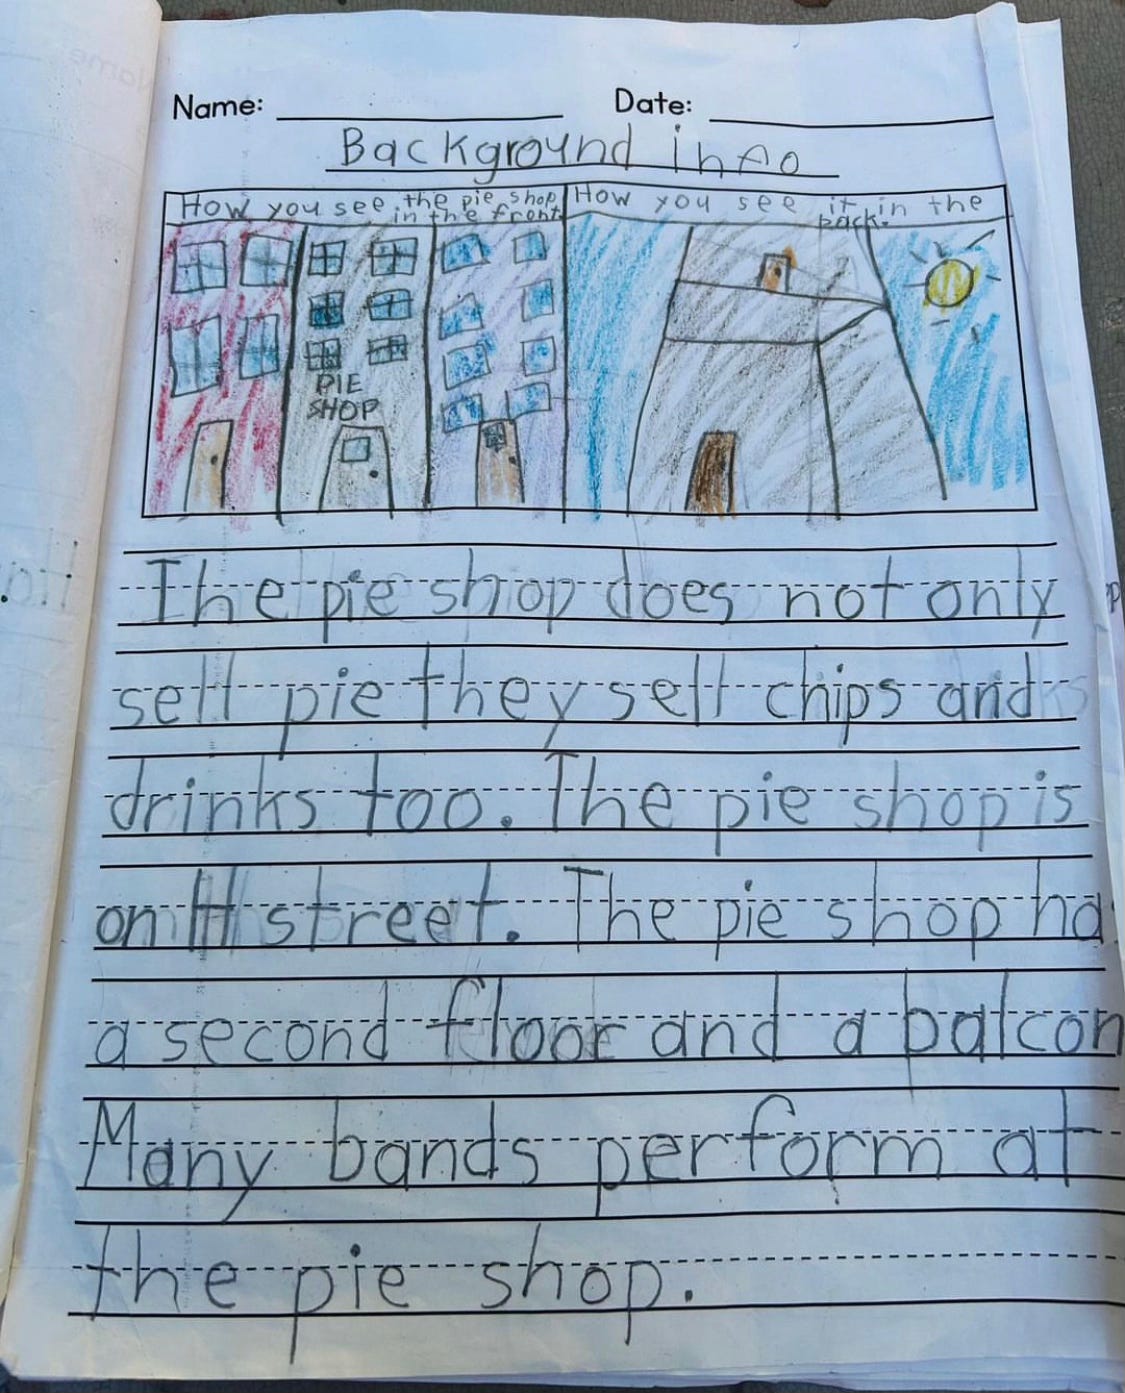 Name: Date:
Background info
How you see the pie shop
in the front
How you see it in the
back.
PIE
SHOP
The pie shop does not only
sell pie they sell chips and
drinks too. The pie shop is
on H street. The pie shop ha
a second floor and a balcon
Many bands perform at
the pie shop.